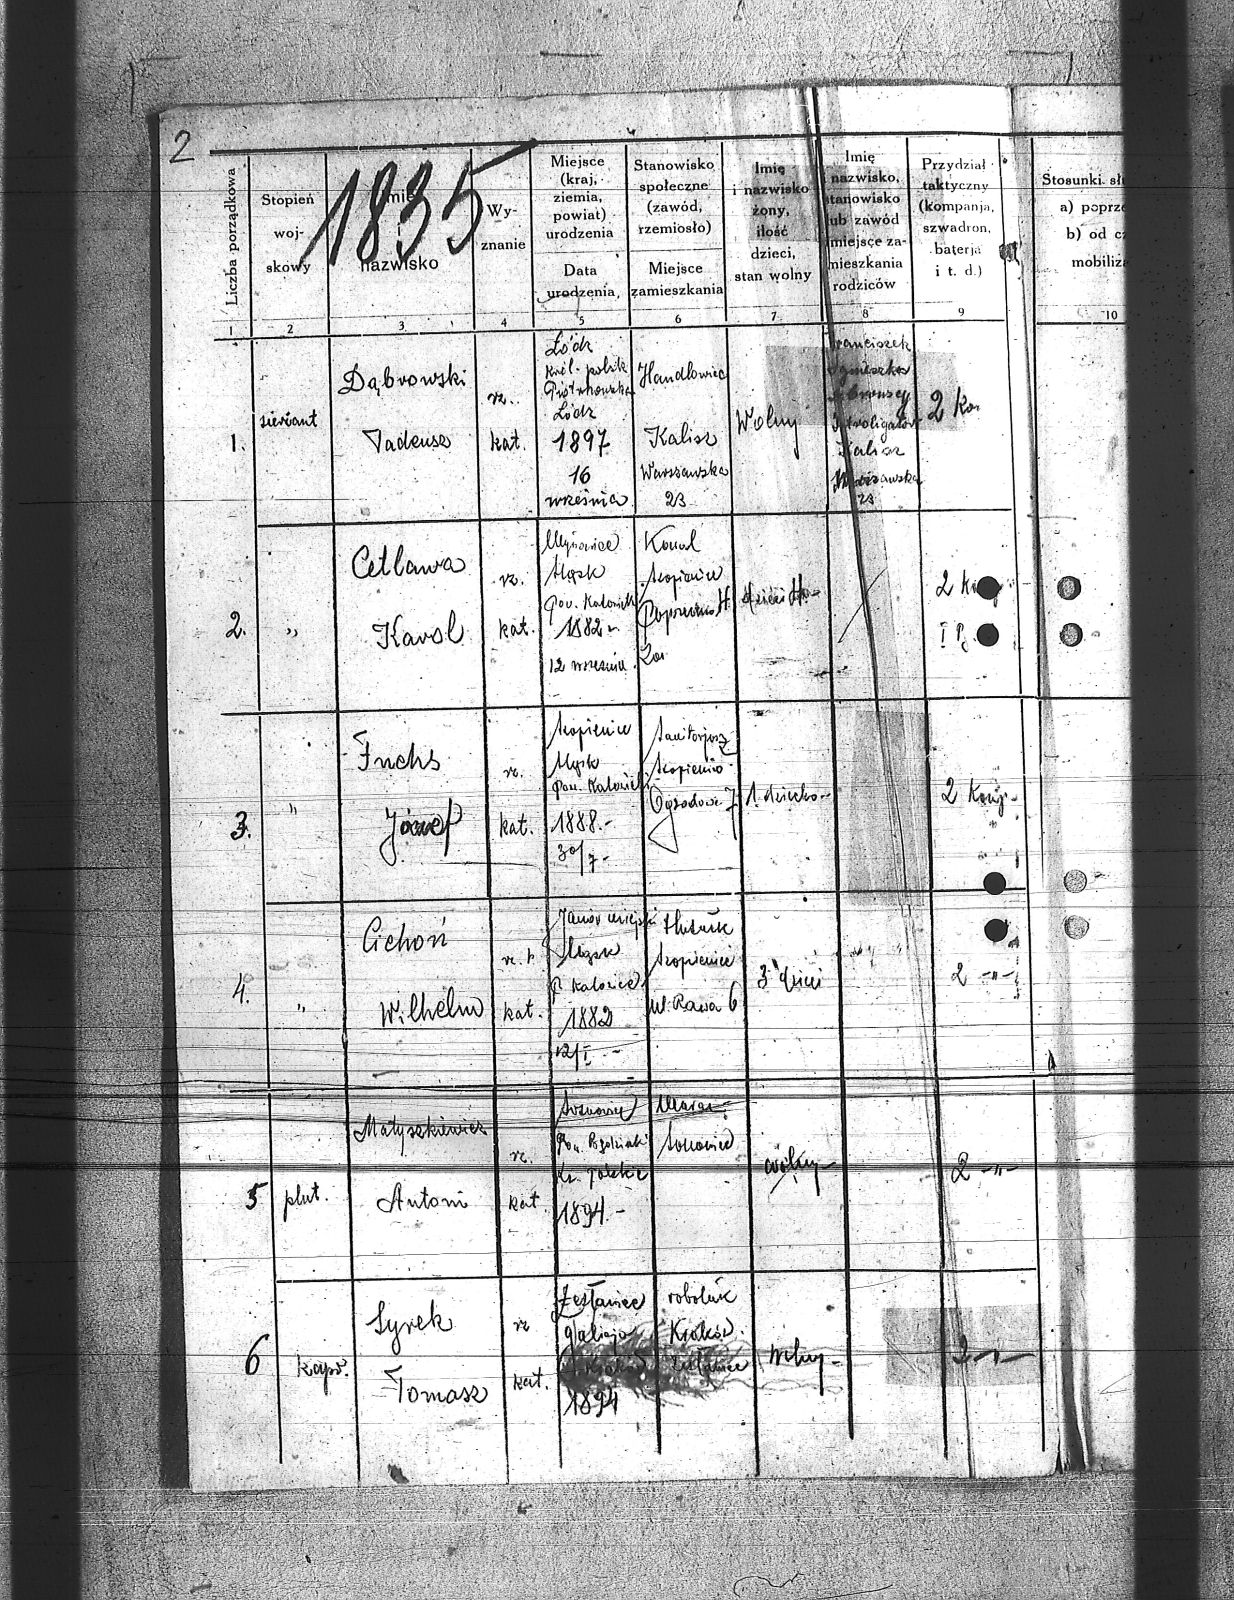 2
1835
Liczba porządkowa
Stopień
woj-
skowy
Imię
i
nazwisko
Wy-
znanie
Miejsce
(kraj,
ziemia,
powiat)
urodzenia
Data
urodzenia
Stanowisko
społeczne
(zawód,
rzemiosło)
Miejsce
zamieszkania
Imię
i nazwisko
żony,
ilość
dzieci,
stan wolny
Imię
nazwisko,
stanowisko
lub zawód
miejsce za-
mieszkania
rodziców
Przydział
taktyczny
(kompanja,
szwadron,
baterja
i t. d.)
Stosunki
a) poprze
b) od
mobiliza
1 2 3 4 5 6 7 8 9 10
1.
sierżant
Dąbrowski
Tadeusz
rz.
kat.
Łódź
Król. polsk
Piotrkowska
Łódź
1897
16
września
Handlowiec
Kalisz
Warszawska
23
Wolny
Franciszek
Agnieszka
Introligator
Kalisz
Warszawska
23
2
2.
"
Cetlawa
Karol
rz.
kat.
Śląsk
pow. Katowick
1882
12 wrześnie
Kowal
Szopienice
dzieci
2
I
3.
"
Fuchs
Józef
rz.
kat.
Szopienice
Śląsk
pow. Katowicki
1888.-
30/7-
Sanitarjusz
Szopienice
Ogrodowa 7
1. dziecko-
2 Komp-
4.
"
Cichoń
Wilhelm
rz.
kat.
Janów miejski
Śląsk
p. Katowice
1882
12/I -
Hutnik
Szopienice
ul. Rawa 6
3 dzieci
2 -"-
5
plut.
Matyszkiewicz
Antoni
rz.
kat
Sosnowice
Pow. Będziński
Kr. polskie
1894.-
Sosnowice
wolny-
2 -"-
6
kapr.
Syrek
Tomasz
rz
kat.
Zesławice
galicja
1894
robotnik
Kraków
Zesławice
Wolny-